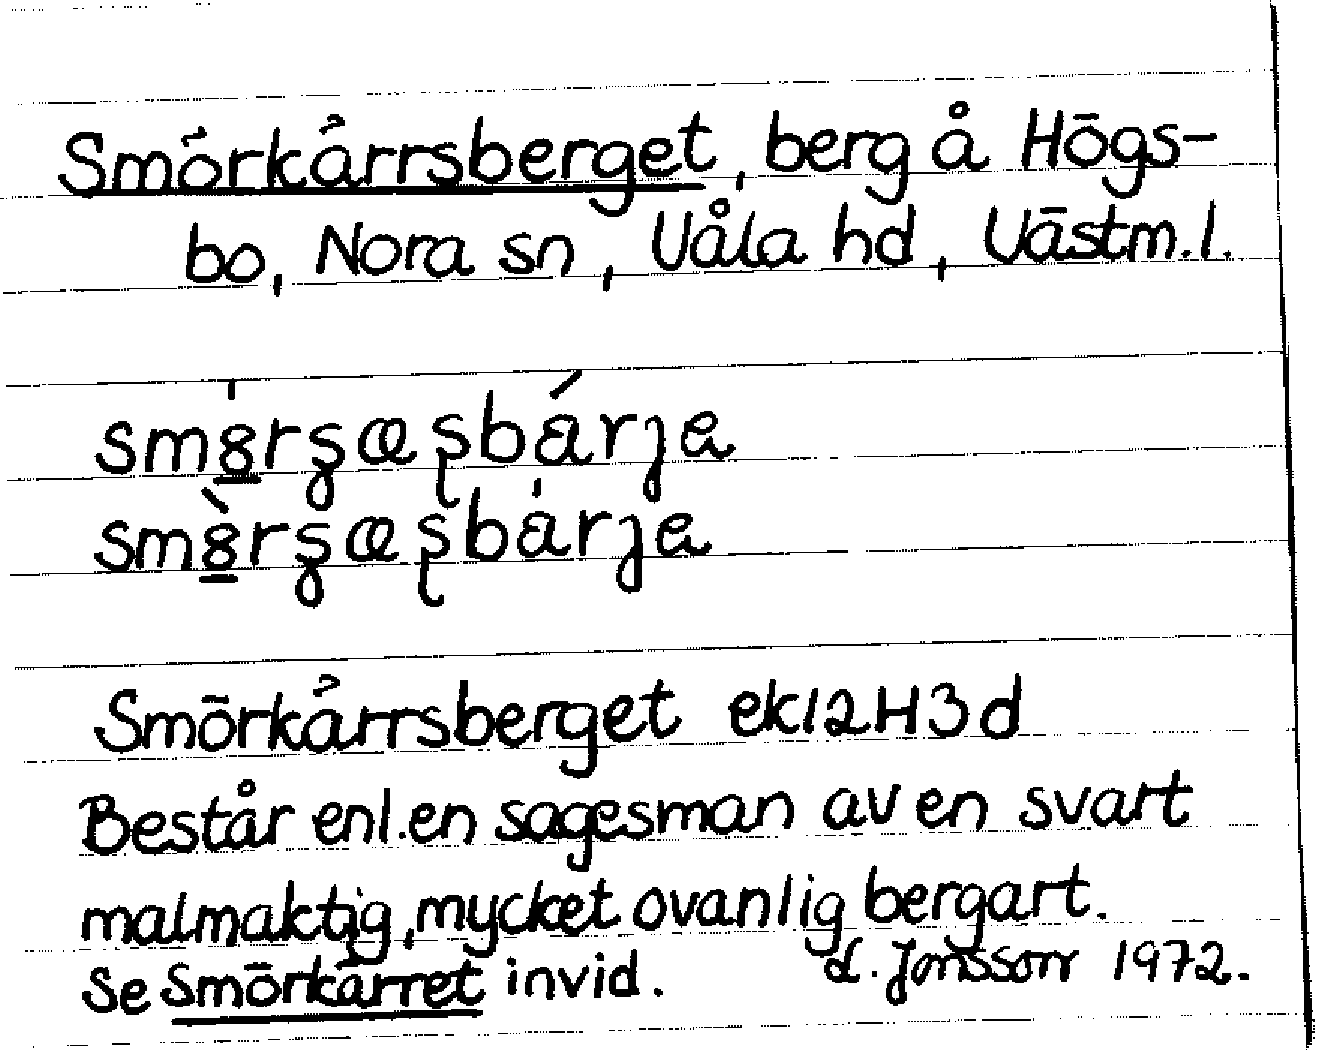 Smörkärrsberget, berg å Högs-
bo, Nora sn, Våla hd, Västm.l.
Smörkärrsberget ek 12H3d
Består enl. en sagesman av en svart
malmaktig, mycket ovanlig bergart.
Se Smörkärret invid. d. Jonsson 1972.